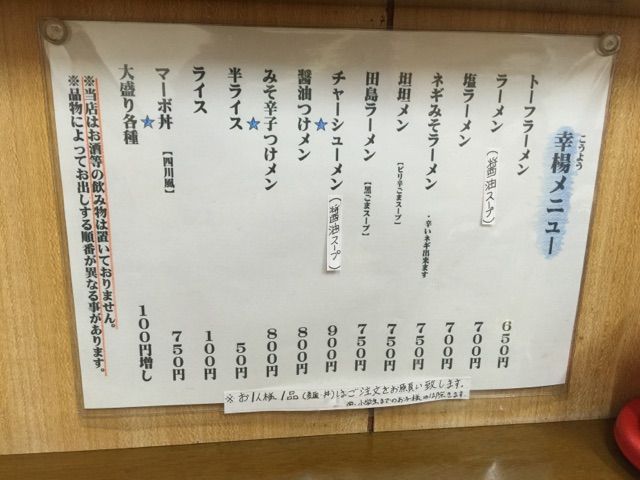 こうよう
幸楊メニュー
トーフラーメン 650円
ラーメン (醤油スープ) 700円
塩ラーメン 700円
ネギみそラーメン ・辛いネギ出来ます 750円
坦坦メン 【ピリ辛ごまスープ】 750円
田島ラーメン 【黒ごまスープ】 750円
チャーシューメン (醤油スープ) 900円
★醤油つけメン 800円
★みそ辛子つけメン 800円
半ライス 50円
ライス 100円
★マーボ丼 【四川風】 750円
大盛り各種 100円増し
※当店はお酒等の飲み物は置いておりません。
※品物によってお出しする順番が異なる事があります。
※お1人様1品(麺・丼)はご注文をお願い致します。
尚、小学生までのお子様は除きます。